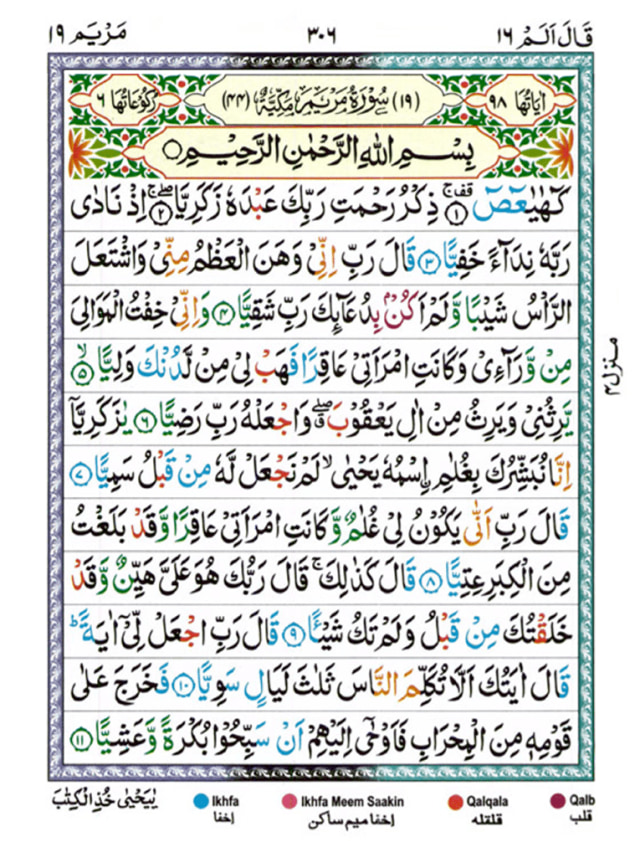 قَالَ اَلَمْ ١٦
٣٠٦
مَرْيَم ١٩
اٰيَاتُهَا ٩٨
(١٩) سُوْرَةُ مَرْيَمَ مَكِّيَّةٌ (٤٤)
رُكُوْعَاتُهَا ٦
بِسْمِ اللّٰهِ الرَّحْمٰنِ الرَّحِيْمِ
كٓهٰيٰعٓصٓ ۚ ﴿١﴾ ذِكْرُ رَحْمَتِ رَبِّكَ عَبْدَهٗ زَكَرِيَّا ۖۚ ﴿٢﴾ اِذْ نَادٰى
رَبَّهٗ نِدَآءً خَفِيًّا ﴿٣﴾ قَالَ رَبِّ اِنِّىْ وَهَنَ الْعَظْمُ مِنِّىْ وَاشْتَعَلَ
الرَّاْسُ شَيْبًا وَّلَمْ اَكُنْۢ بِدُعَآئِكَ رَبِّ شَقِيًّا ﴿٤﴾ وَاِنِّىْ خِفْتُ الْمَوَالِىَ
مِنْ وَّرَآءِىْ وَكَانَتِ امْرَاَتِىْ عَاقِرًا فَهَبْ لِىْ مِنْ لَّدُنْكَ وَلِيًّا ۙ ﴿٥﴾
يَّرِثُنِىْ وَيَرِثُ مِنْ اٰلِ يَعْقُوْبَ ۖۗ وَاجْعَلْهُ رَبِّ رَضِيًّا ﴿٦﴾ يٰزَكَرِيَّآ
اِنَّا نُبَشِّرُكَ بِغُلٰمِ ۨاسْمُهٗ يَحْيٰى ۙ لَمْ نَجْعَلْ لَّهٗ مِنْ قَبْلُ سَمِيًّا ﴿٧﴾
قَالَ رَبِّ اَنّٰى يَكُوْنُ لِىْ غُلٰمٌ وَّكَانَتِ امْرَاَتِىْ عَاقِرًا وَّقَدْ بَلَغْتُ
مِنَ الْكِبَرِ عِتِيًّا ﴿٨﴾ قَالَ كَذٰلِكَ ۚ قَالَ رَبُّكَ هُوَ عَلَىَّ هَيِّنٌ وَّقَدْ
خَلَقْتُكَ مِنْ قَبْلُ وَلَمْ تَكُ شَيْـًٔا ﴿٩﴾ قَالَ رَبِّ اجْعَلْ لِّىْٓ اٰيَةً ؕ
قَالَ اٰيَتُكَ اَلَّا تُكَلِّمَ النَّاسَ ثَلٰثَ لَيَالٍ سَوِيًّا ﴿١٠﴾ فَخَرَجَ عَلٰى
قَوْمِهٖ مِنَ الْمِحْرَابِ فَاَوْحٰٓى اِلَيْهِمْ اَنْ سَبِّحُوْا بُكْرَةً وَّعَشِيًّا ﴿١١﴾
منزل ٤
يٰيَحْيٰى خُذِ الْكِتٰبَ
Ikhfa
اِخفا
Ikhfa Meem Saakin
اِخفا میم ساکن
Qalqala
قلقله
Qalb
قلب